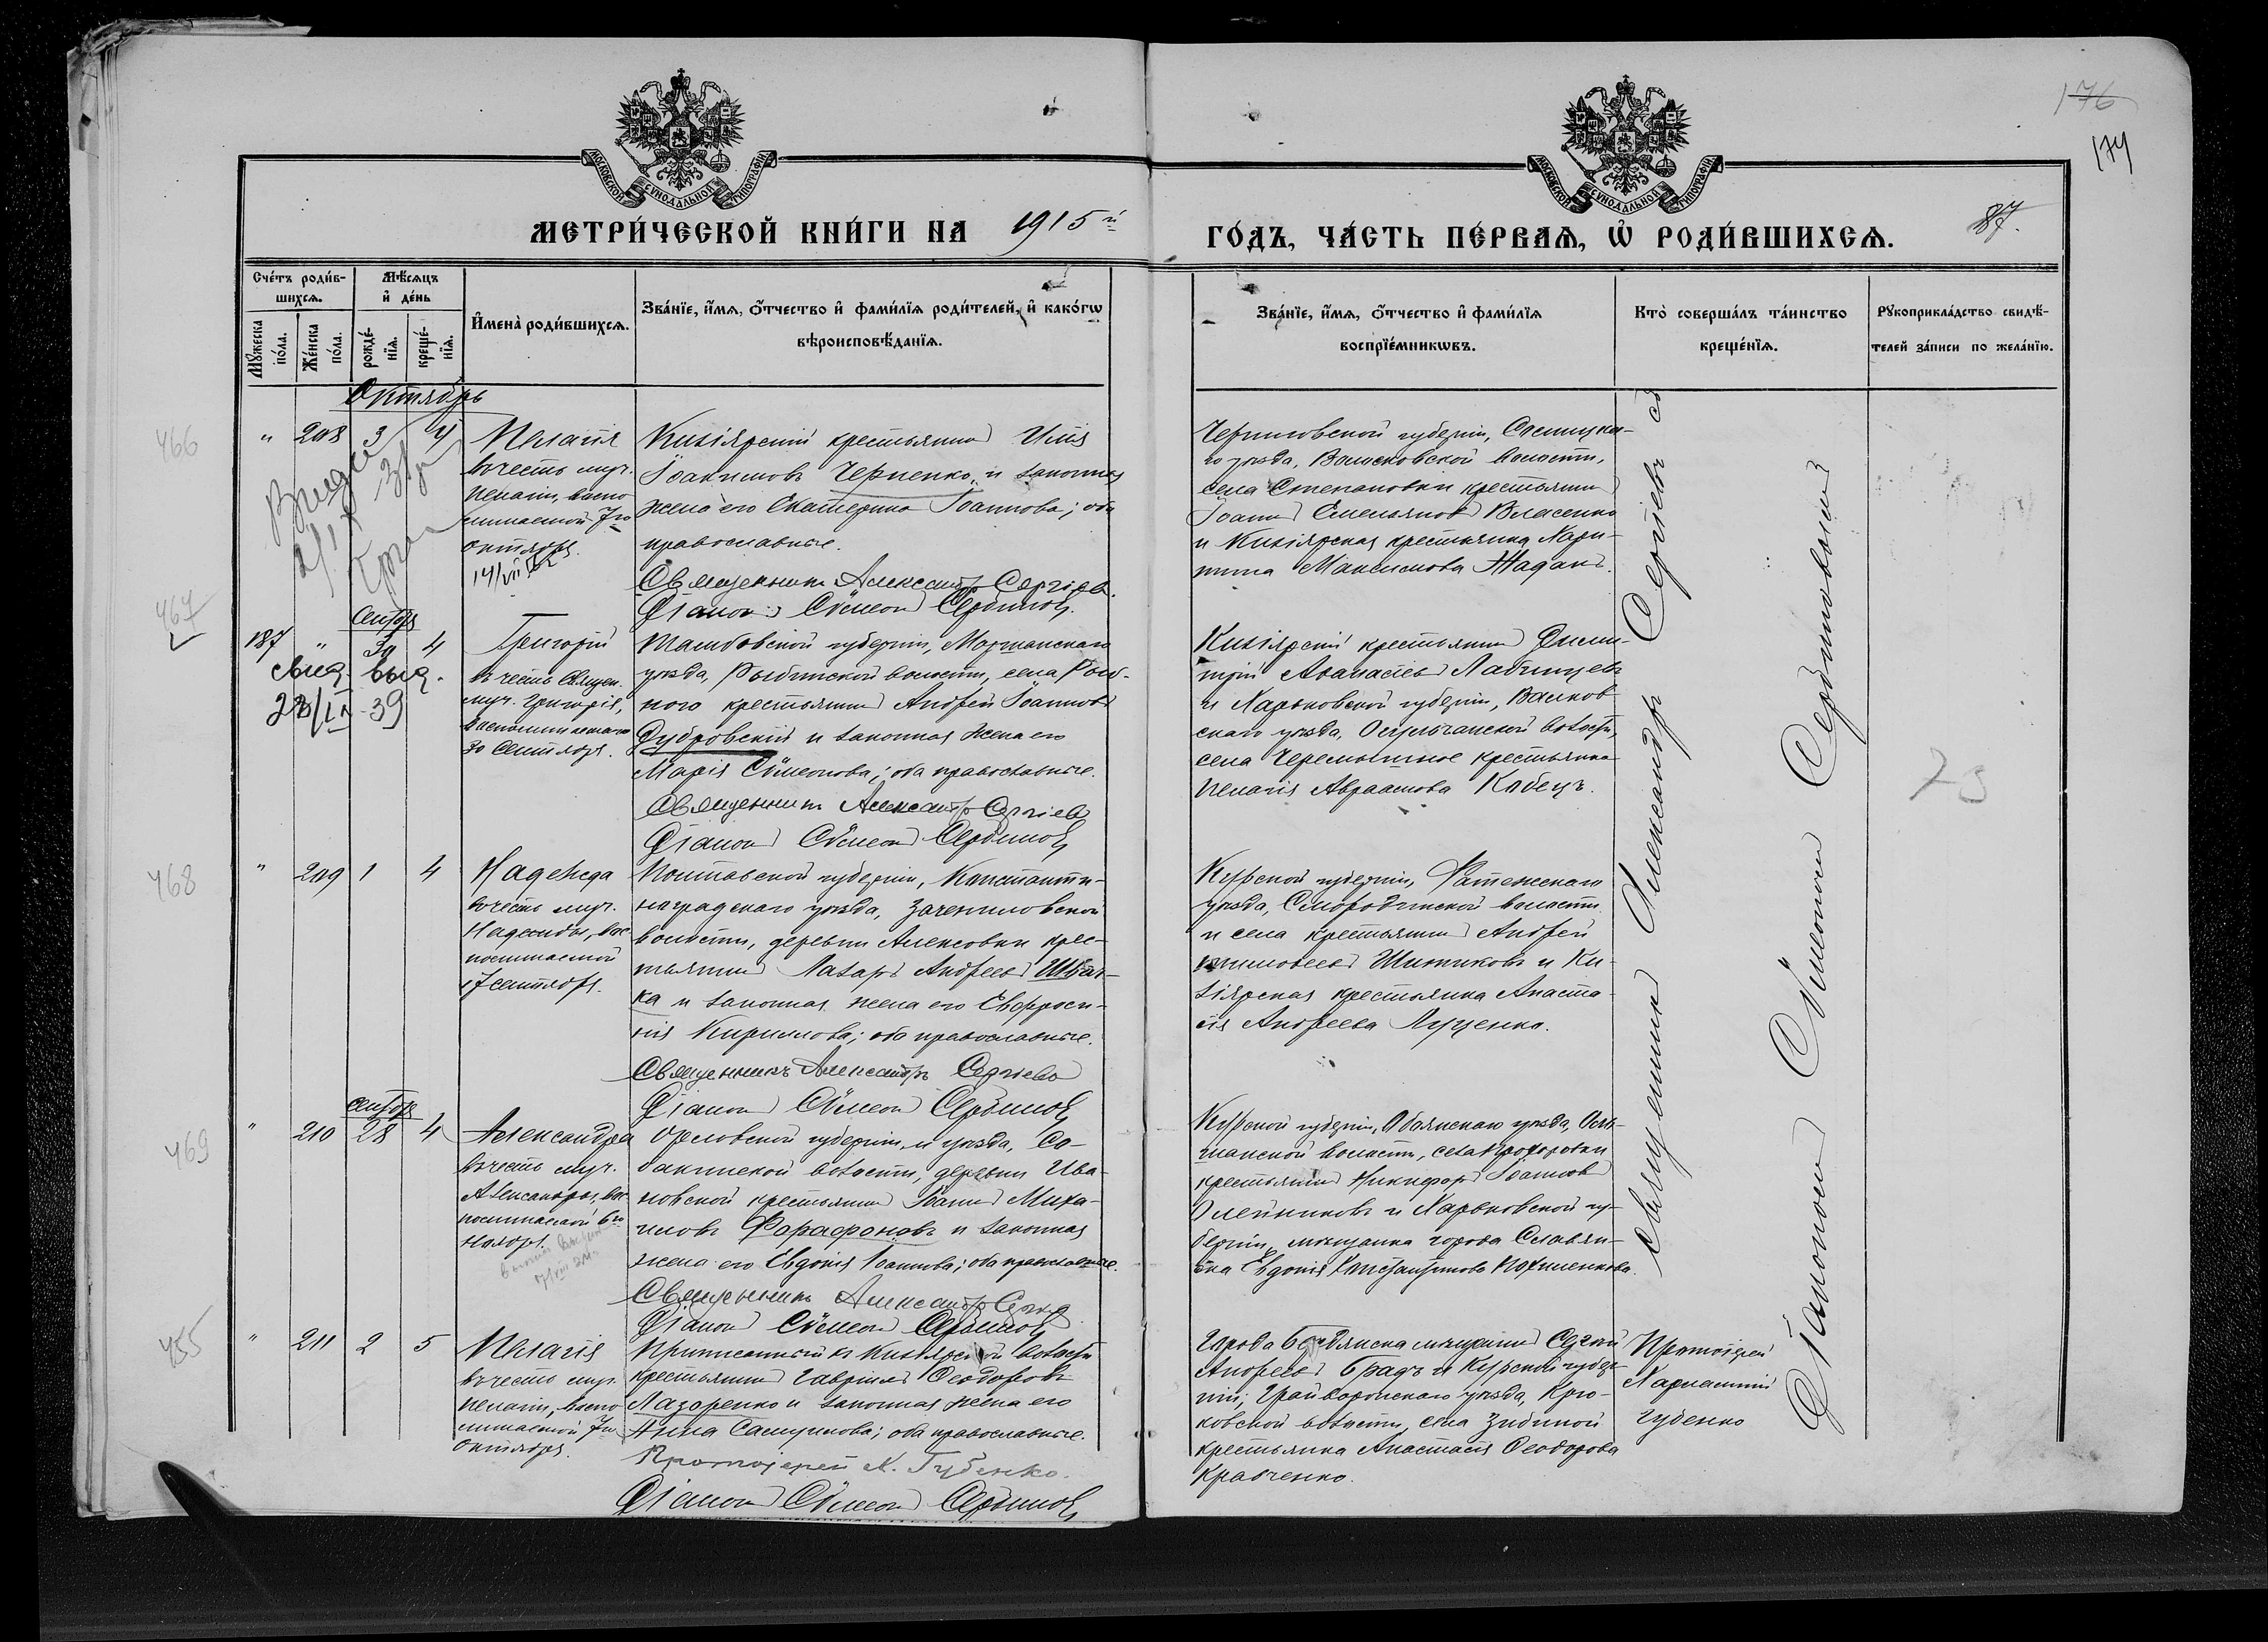 176
174
МОСКОВСКОЙ СѴНОДАЛЬНОЙ ТИПОГРАФІИ
МОСКОВСКОЙ СѴНОДАЛЬНОЙ ТИПОГРАФІИ
МЕТРИ́ЧЕСКОЙ КНИ́ГИ НА 1915й
ГО́ДЪ, ЧА́СТЬ ПЕ́РВАѦ, Ѡ҆ РОДИ́ВШИХСѦ.
87.
Сче́тъ роди́в-
шихсѧ.
Мꙋ́жеска по́ла.
Же́нска по́ла.
Мѣ́сѧцъ
и҆ де́нь
рожде́-
нїѧ.
креще́-
нїѧ.
И҆мена̀ роди́вшихсѧ.
Зва́нїе, и҆́мѧ, ѻ҆́тчество и҆ фами́лїѧ роди́телей, и҆ како́гѡ
вѣроисповѣ́данїѧ.
Зва́нїе, и҆́мѧ, ѻ҆́тчество и҆ фами́лїѧ
воспрїе́мникѡвъ.
Кто̀ соверша́лъ та́инство
креще́нїѧ.
Рꙋкоприкла́дство свидѣ́-
телей за́писи по жела́нїю.
Октябрь
466
" 208 3 4
Пелагія
въ честь муч.
Пелагіи, воспо
минаемой 7го
октября.
Кизіярскій крестьянинъ Илія
Іоакимовъ Черненко и законная
жена его Екатерина Іоаннова; оба
православные.
Священникъ Александръ Сергіевъ.
Діаконъ Сѵмеонъ Сербиновъ.
Черниговской губерніи, Сосницка-
го уѣзда, Волосковской волости,
села Степановки крестьянинъ
Іоаннъ Емельяновъ Власенко
и Кизіярская крестьянка Хари-
тина Максимова Жаданъ.
467
Сентябр
187 " 30 4
свид. выд.
28/IX 39
Григорій
въ честь Священ.
муч. Григорія,
воспоминаемаго
30 Сентября.
Тамбовской губерніи, Моршанскаго
уѣзда, Рыбинской волости, села Рыб-
ного крестьянинъ Андрей Іоанновъ
Дубровскій и законная жена его
Марія Сѵмеонова; оба православные.
Священникъ Александръ Сергіевъ
Діаконъ Сѵмеонъ Сербиновъ
Кизіярскій крестьянинъ Дими-
трій Аѳанасіевъ Лабинцевъ
и Харьковской губерніи, Валков-
скаго уѣзда, волости,
села Черемышное крестьянка
Пелагія Авраамова Кобецъ.
73
468
" 209 1 4
Надежда
въ честь муч.
Надежды, вос
поминаемой
17 сентября.
Полтавской губерніи, Константи-
ноградскаго уѣзда, Зачепиловской
волости, деревни Алексовки крес-
тьянинъ Лазарь Андреевъ
ка и законная жена его Евфроси-
нія Кириллова; оба православные.
Священникъ Александръ Сергіевъ
Діаконъ Сѵмеонъ Сербиновъ
Курской губерніи, Фатежскаго
уѣзда, Смородинской волости
и села крестьянинъ Андрей
и Ки-
зіярская крестьянка Анаста-
сія Андреева Луценко.
469
сентябр
" 210 28 4
Александра
въ честь муч.
Александры, вос
поминаемой 6го
Ноября.
Орловской губерніи и уѣзда, Со-
бакинской волости, деревни Ива-
новской крестьянинъ Іоаннъ Миха-
иловъ Фарафоновъ и законная
жена его Евдокія Іоаннова; оба православные.
Священникъ Александръ Сергіевъ
Діаконъ Сѵмеонъ Сербиновъ
Курской губерніи, Обоянскаго уѣзда,
волости, села
крестьянинъ Никифоръ Іоанновъ
Олейниковъ и Харьковской гу-
берніи, мѣщанка города Славян-
ска Евдокія Константинова
455
" 211 2 5
Пелагія
въ честь муч.
Пелагіи, воспо
минаемой 7го
Октября.
Приписанный къ Кизіярской волости
крестьянинъ Гавріилъ Ѳеодоровъ
Лазоренко и законная жена его
Анна Самуилова; оба православные.
Протоіерей Х. Губенко.
Діаконъ Сѵмеонъ Сербиновъ
Города Бердянска мѣщанинъ Сергій
Андреевъ Брадъ и Курской губер-
ніи, Грайворонскаго уѣзда, Крю-
ковской волости, села Зыбиной
крестьянка Анастасія Ѳеодорова
Кравченко.
Протоіерей
Харлампій
Губенко
Священникъ Александръ Сергіевъ съ
Діакономъ Сѵмеономъ Сербиновымъ